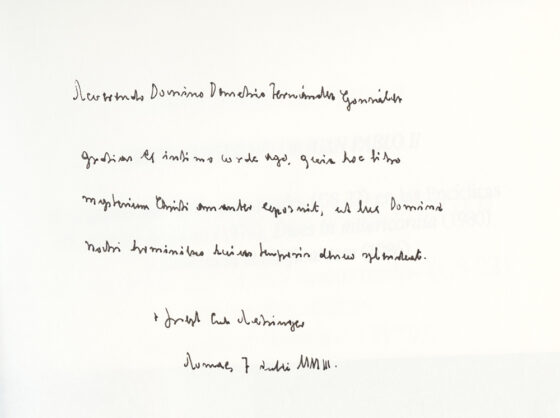 Reverendo Domino Demetrio Fernández González
gratias ex intimo corde ago, quia hoc libro
mysterium Christi amanter exposuit, ut lux Domini
nostri hominibus huius temporis denuo splendeat.
+ Joseph Card. Ratzinger
Romae, 7 Julii MMIII.
JUAN PABLO II